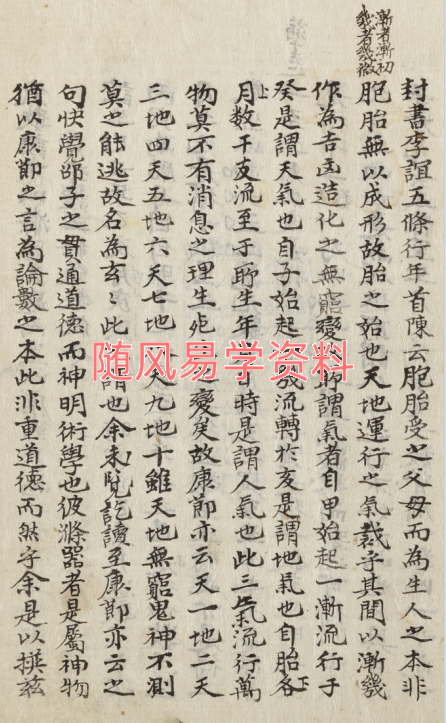 漸者漸初
幾者幾微
封書李誼五條行年首陳云胞胎受之父母而為生人之本非
胞胎無以成形故胎之始也天地運行之氣裁乎其間以漸幾
作為吉凶造化之無窮變 所謂氣者自甲始起一漸流行于
癸是謂天氣也自子始起 幾流轉於亥是謂地氣也自胎各
月数干支流至于所生年 日時是謂人氣也此三氣流行萬
上
下
物莫不有消息之理生 之變矣故康節亦云天一地二天
三地四天五地六天七地 天九地十雖天地無窮鬼神不測
莫之能逃故名為玄〻此 謂也余未覽訖讀至康節亦云之
句快覺邵子之貫通道德而神明術學也彼滌器者是屬神物
猶以康節之言為論數之本此非重道德而然乎余是以撰茲
随风易学资料